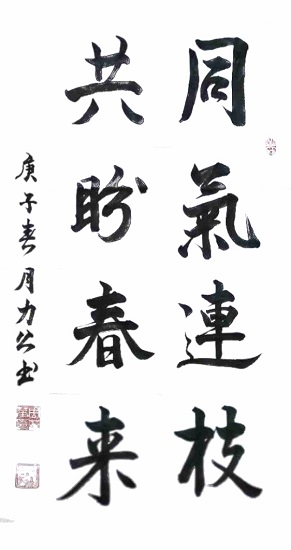 同氣連枝
共盼春来
庚子春月力公书